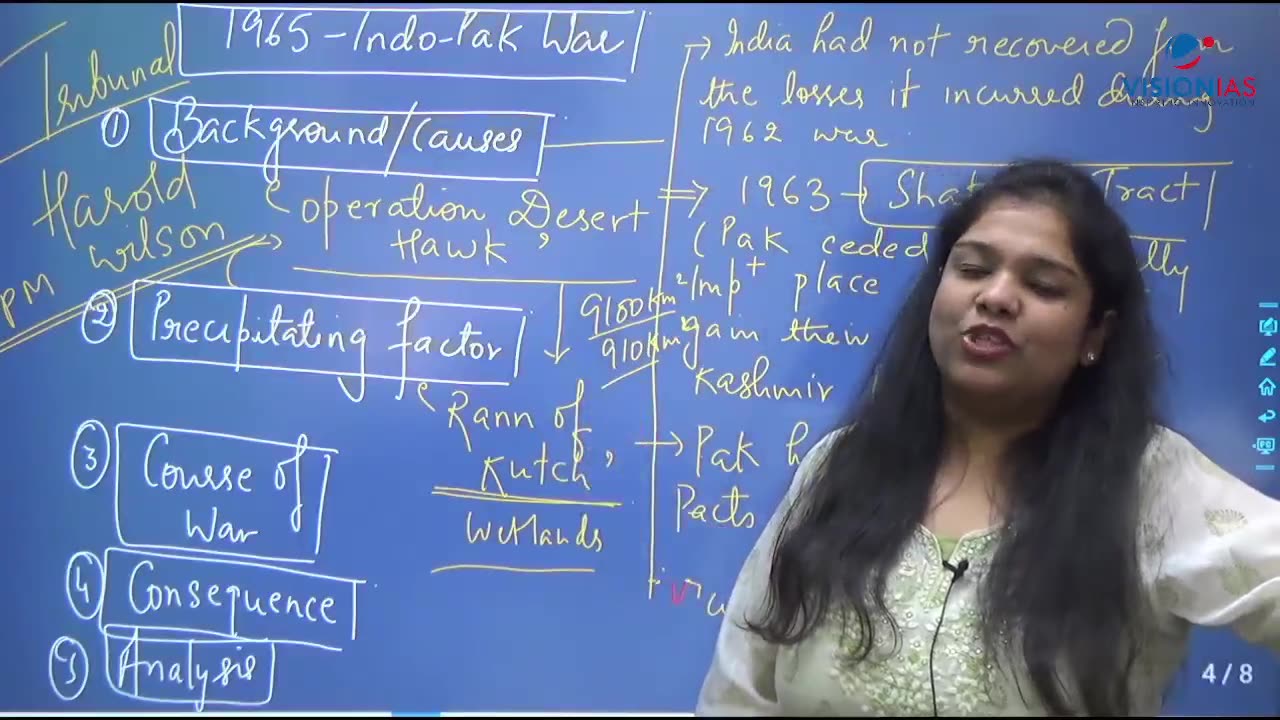 1965 - Indo-Pak War
Tribunal
Harold
Wilson
PM
① Background/Causes
operation Desert
Hawk,
② Precipitating factor
9100 km²
910 km²
Rann of
Kutch,
Wetlands
③ Course of
War
④ Consequence
⑤ Analysis
→ India had not recovered from
the losses it incurred during
1962 war
⇒ 1963 → Tract
(Pak ceded
/Imp+ place
gain their
Kashmir
→ Pak
Pacts
VISIONIAS
4/8